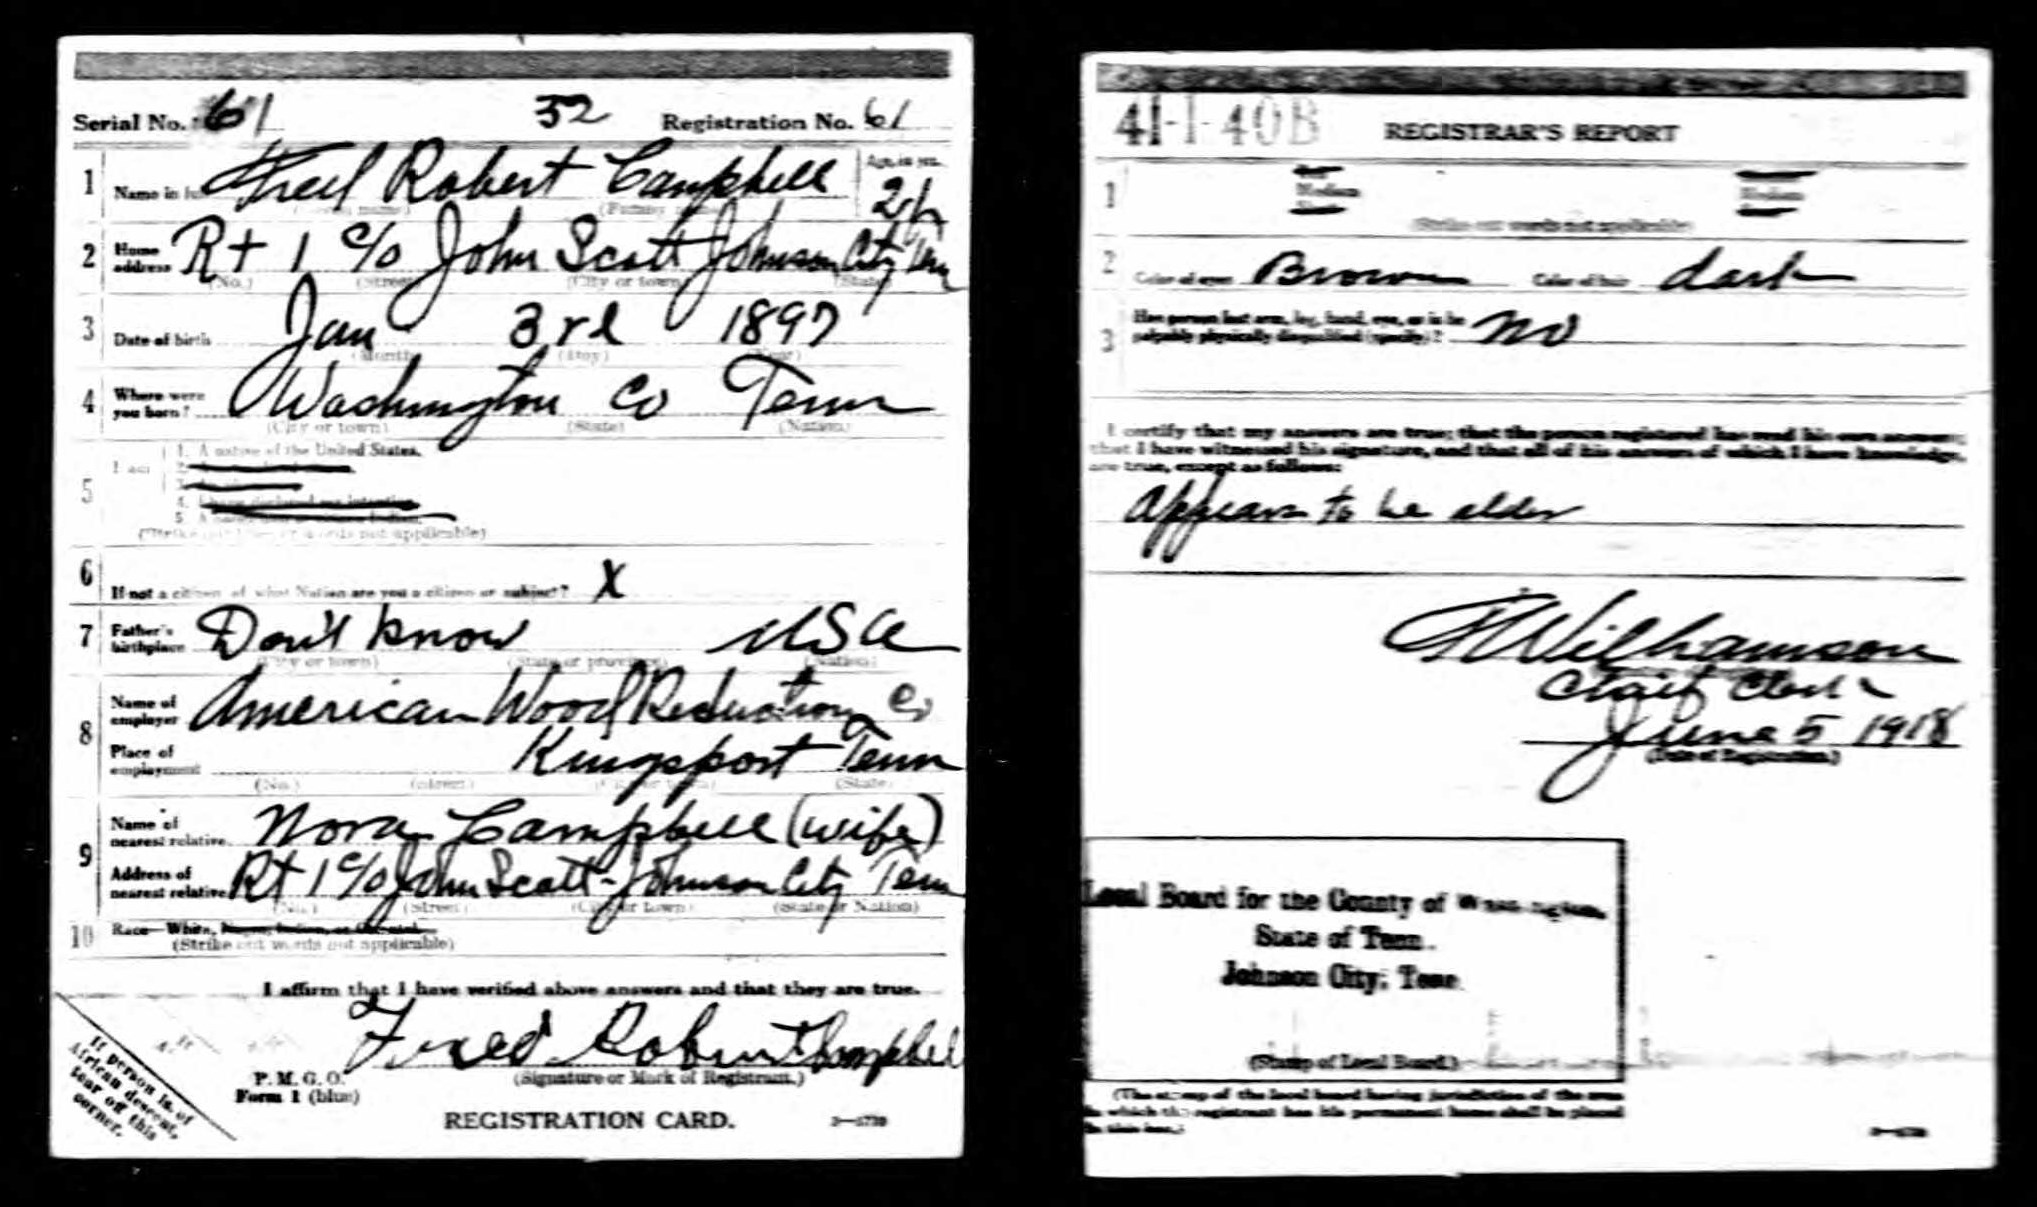 Serial No. 61 32 Registration No. 61
1 Name in full Fred Robert Campbell Age, in yrs. 21
(Given name) (Family name)
2 Home address Rt 1 c/o John Scott Johnson City Tenn
(No.) (Street) (City or town) (State)
3 Date of birth Jan 3rd 1897
(Month) (Day) (Year)
4 Where were you born? Washington Co Tenn
(City or town) (State) (Nation)
5 I am
1. A native of the United States.
2.
3.
4. I have declared my intention
5. A
(Strike out lines or words not applicable)
6 If not a citizen of what Nation are you a citizen or subject? X
7 Father's birthplace Don't know USA
(City or town) (State or province) (Nation)
8 Name of employer American Wood Reduction Co
Place of employment Kingsport Tenn
(No.) (Street) (City or town) (State)
9 Name of nearest relative Nora Campbell (wife)
Address of nearest relative Rt 1 c/o John Scott - Johnson City Tenn
(No.) (Street) (City or town) (State or Nation)
10 Race—White, Negro, Indian, or Oriental.
(Strike out words not applicable)
I affirm that I have verified above answers and that they are true.
Fred Robert Campbell
(Signature or Mark of Registrant.)
P. M. G. O.
Form 1 (blue)
REGISTRATION CARD.
If person is of
African descent,
tear off this
corner.
41-1-40B REGISTRAR'S REPORT
1 Medium Medium
(Strike out words not applicable)
2 Color of eyes Brown Color of hair dark
3 Has person lost arm, leg, hand, eye, or is he
palpably physically disqualified (specify)? No
I certify that my answers are true; that the person registered has read his own answers;
that I have witnessed his signature, and that all of his answers of which I have knowledge,
are true, except as follows:
Appears to be older
Williamson
Chief Clerk
June 5 1918
(Date of Registration.)
Local Board for the County of Washington,
State of Tenn.
Johnson City, Tenn.
(Stamp of Local Board.)
(The stamp of the local board having jurisdiction of the area
in which the registrant has his permanent home shall be placed
in this box.)